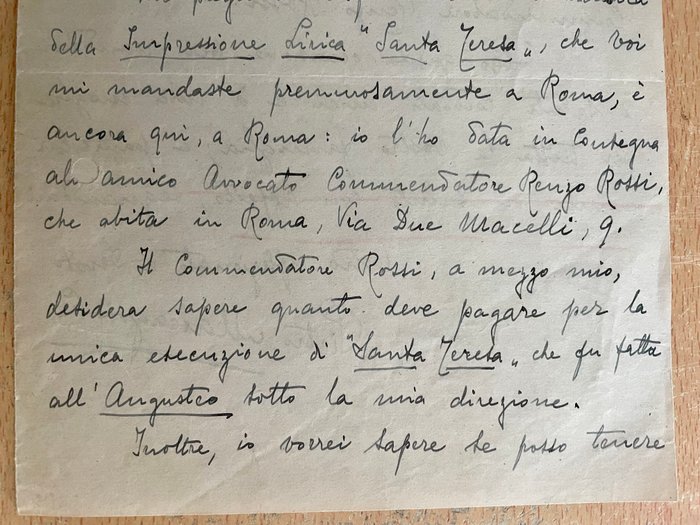 della Impressione Lirica "Santa Teresa„, che voi
mi mandaste premurosamente a Roma, è
ancora qui, a Roma: io l'ho data in consegna
all'amico Avvocato Commendatore Renzo Rossi,
che abita in Roma, Via Due Macelli, 9.
Il Commendatore Rossi, a mezzo mio,
desidera sapere quanto deve pagare per la
unica esecuzione di "Santa Teresa„ che fu fatta
all'Augusteo sotto la mia direzione.
Inoltre, io vorrei sapere se posso tenere